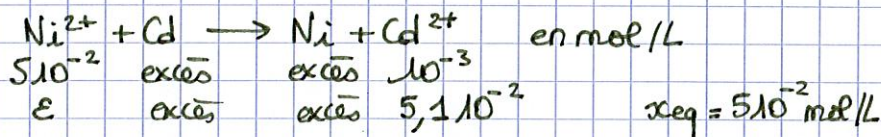 Ni²⁺ + Cd ⟶ Ni + Cd²⁺ en mol/L
5 10⁻² excès excès 10⁻³
ε excès excès 5,1 10⁻² xeq = 5 10⁻² mol/L